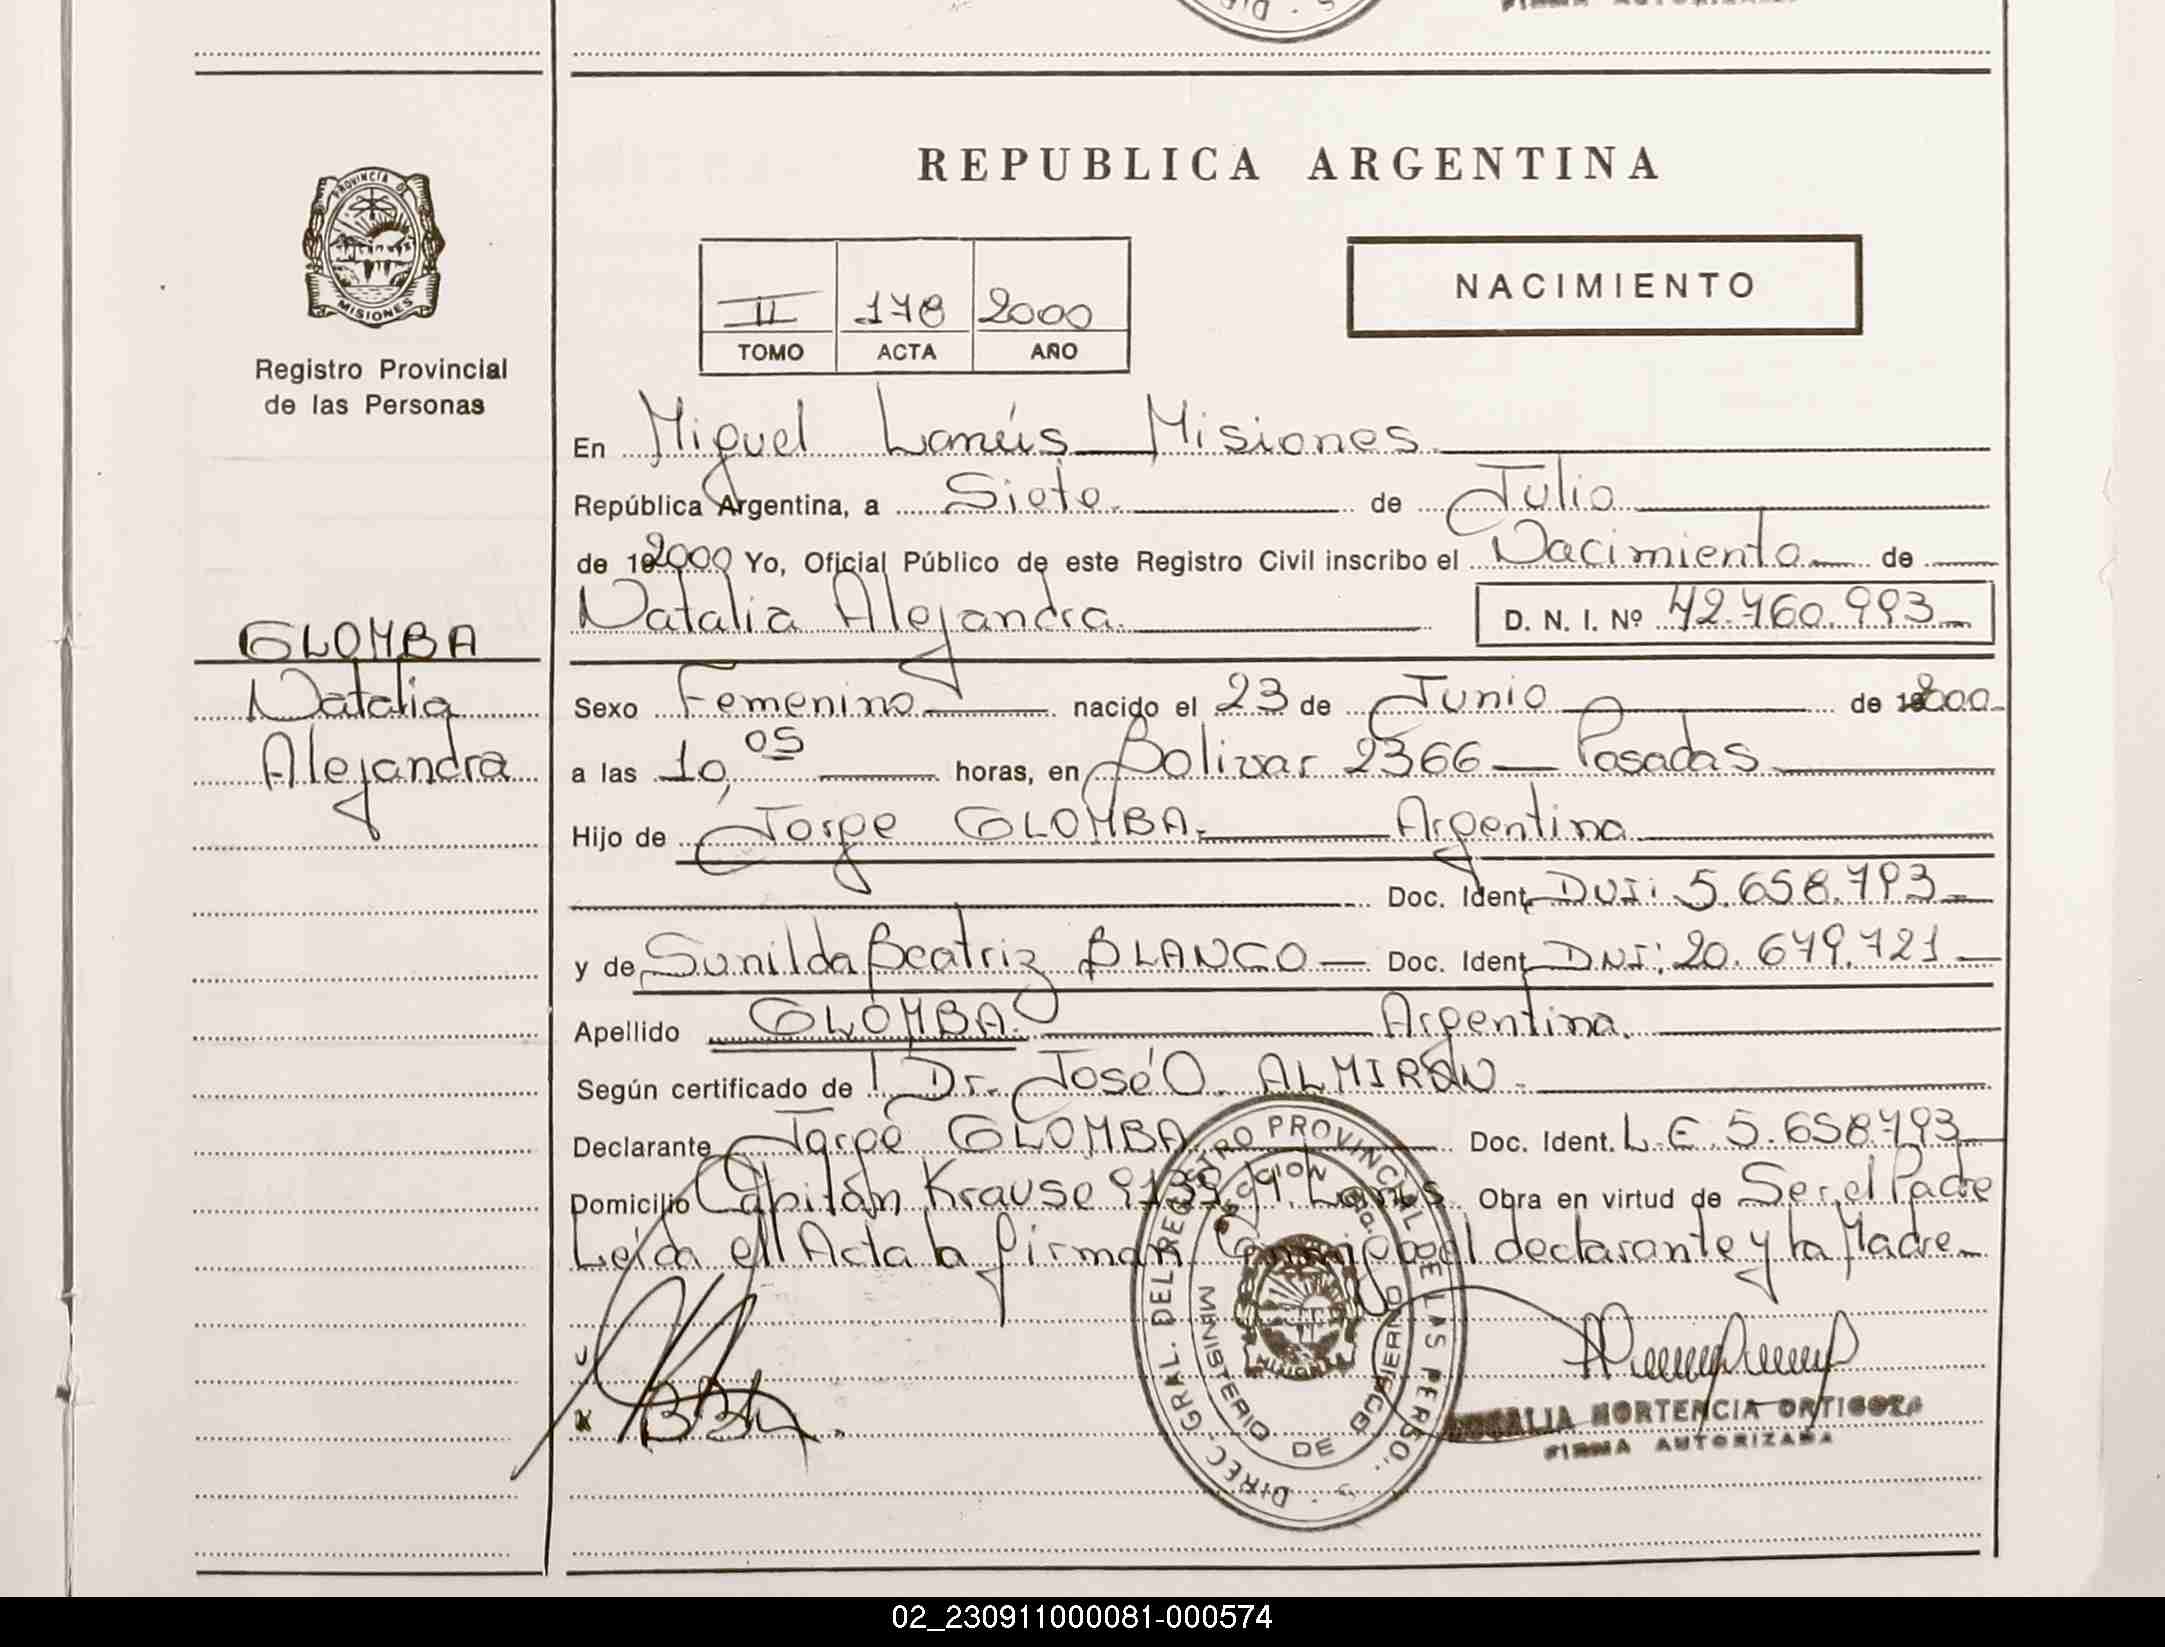 REPUBLICA ARGENTINA
PROVINCIA D
MISIONES
Registro Provincial
de las Personas
II 178 2000
TOMO ACTA AÑO
NACIMIENTO
En Miguel Lanús Misiones
República Argentina, a Siete de Julio
de 19 2000 Yo, Oficial Público de este Registro Civil inscribo el Nacimiento de
Natalia Alejandra D. N. I. Nº 42.760.993
GLOMBA
Natalia
Alejandra
Sexo Femenino nacido el 23 de Junio de 2000
a las 10,05 horas, en Bolivar 2366 Posadas
Hijo de Jorge GLOMBA Argentina
Doc. Ident. DNI: 5.658.793
y de Sunilda Beatriz BLANCO Doc. Ident. DNI: 20.679.721
Apellido GLOMBA. Argentina.
Según certificado de Dr. José O. ALMIRÓN
Declarante Jorge GLOMBA Doc. Ident. L.E. 5.658.793
Domicilio Capitán Krause 9139 M. Lanus Obra en virtud de Ser el Padre
Leída el Acta la firman Conmigo el declarante y la Madre
DIREC. GRAL. DEL REGISTRO PROVINCIAL DE LAS PERSO
MINISTERIO DE GOBIERNO
MISIONES
HORTENCIA ORTIGOZA
FIRMA AUTORIZADA
02_230911000081-000574